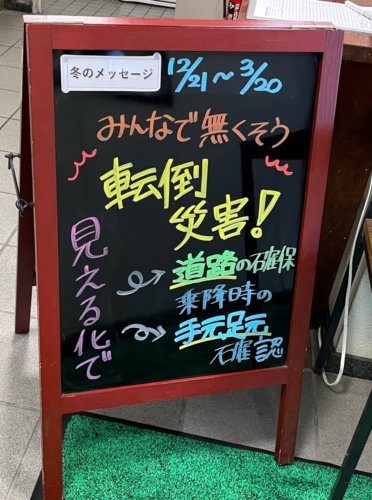 冬のメッセージ
12/21～3/20
みんなで無くそう
転倒
災害!
見える化で
道路の確保
乗降時の
手元足元
確認